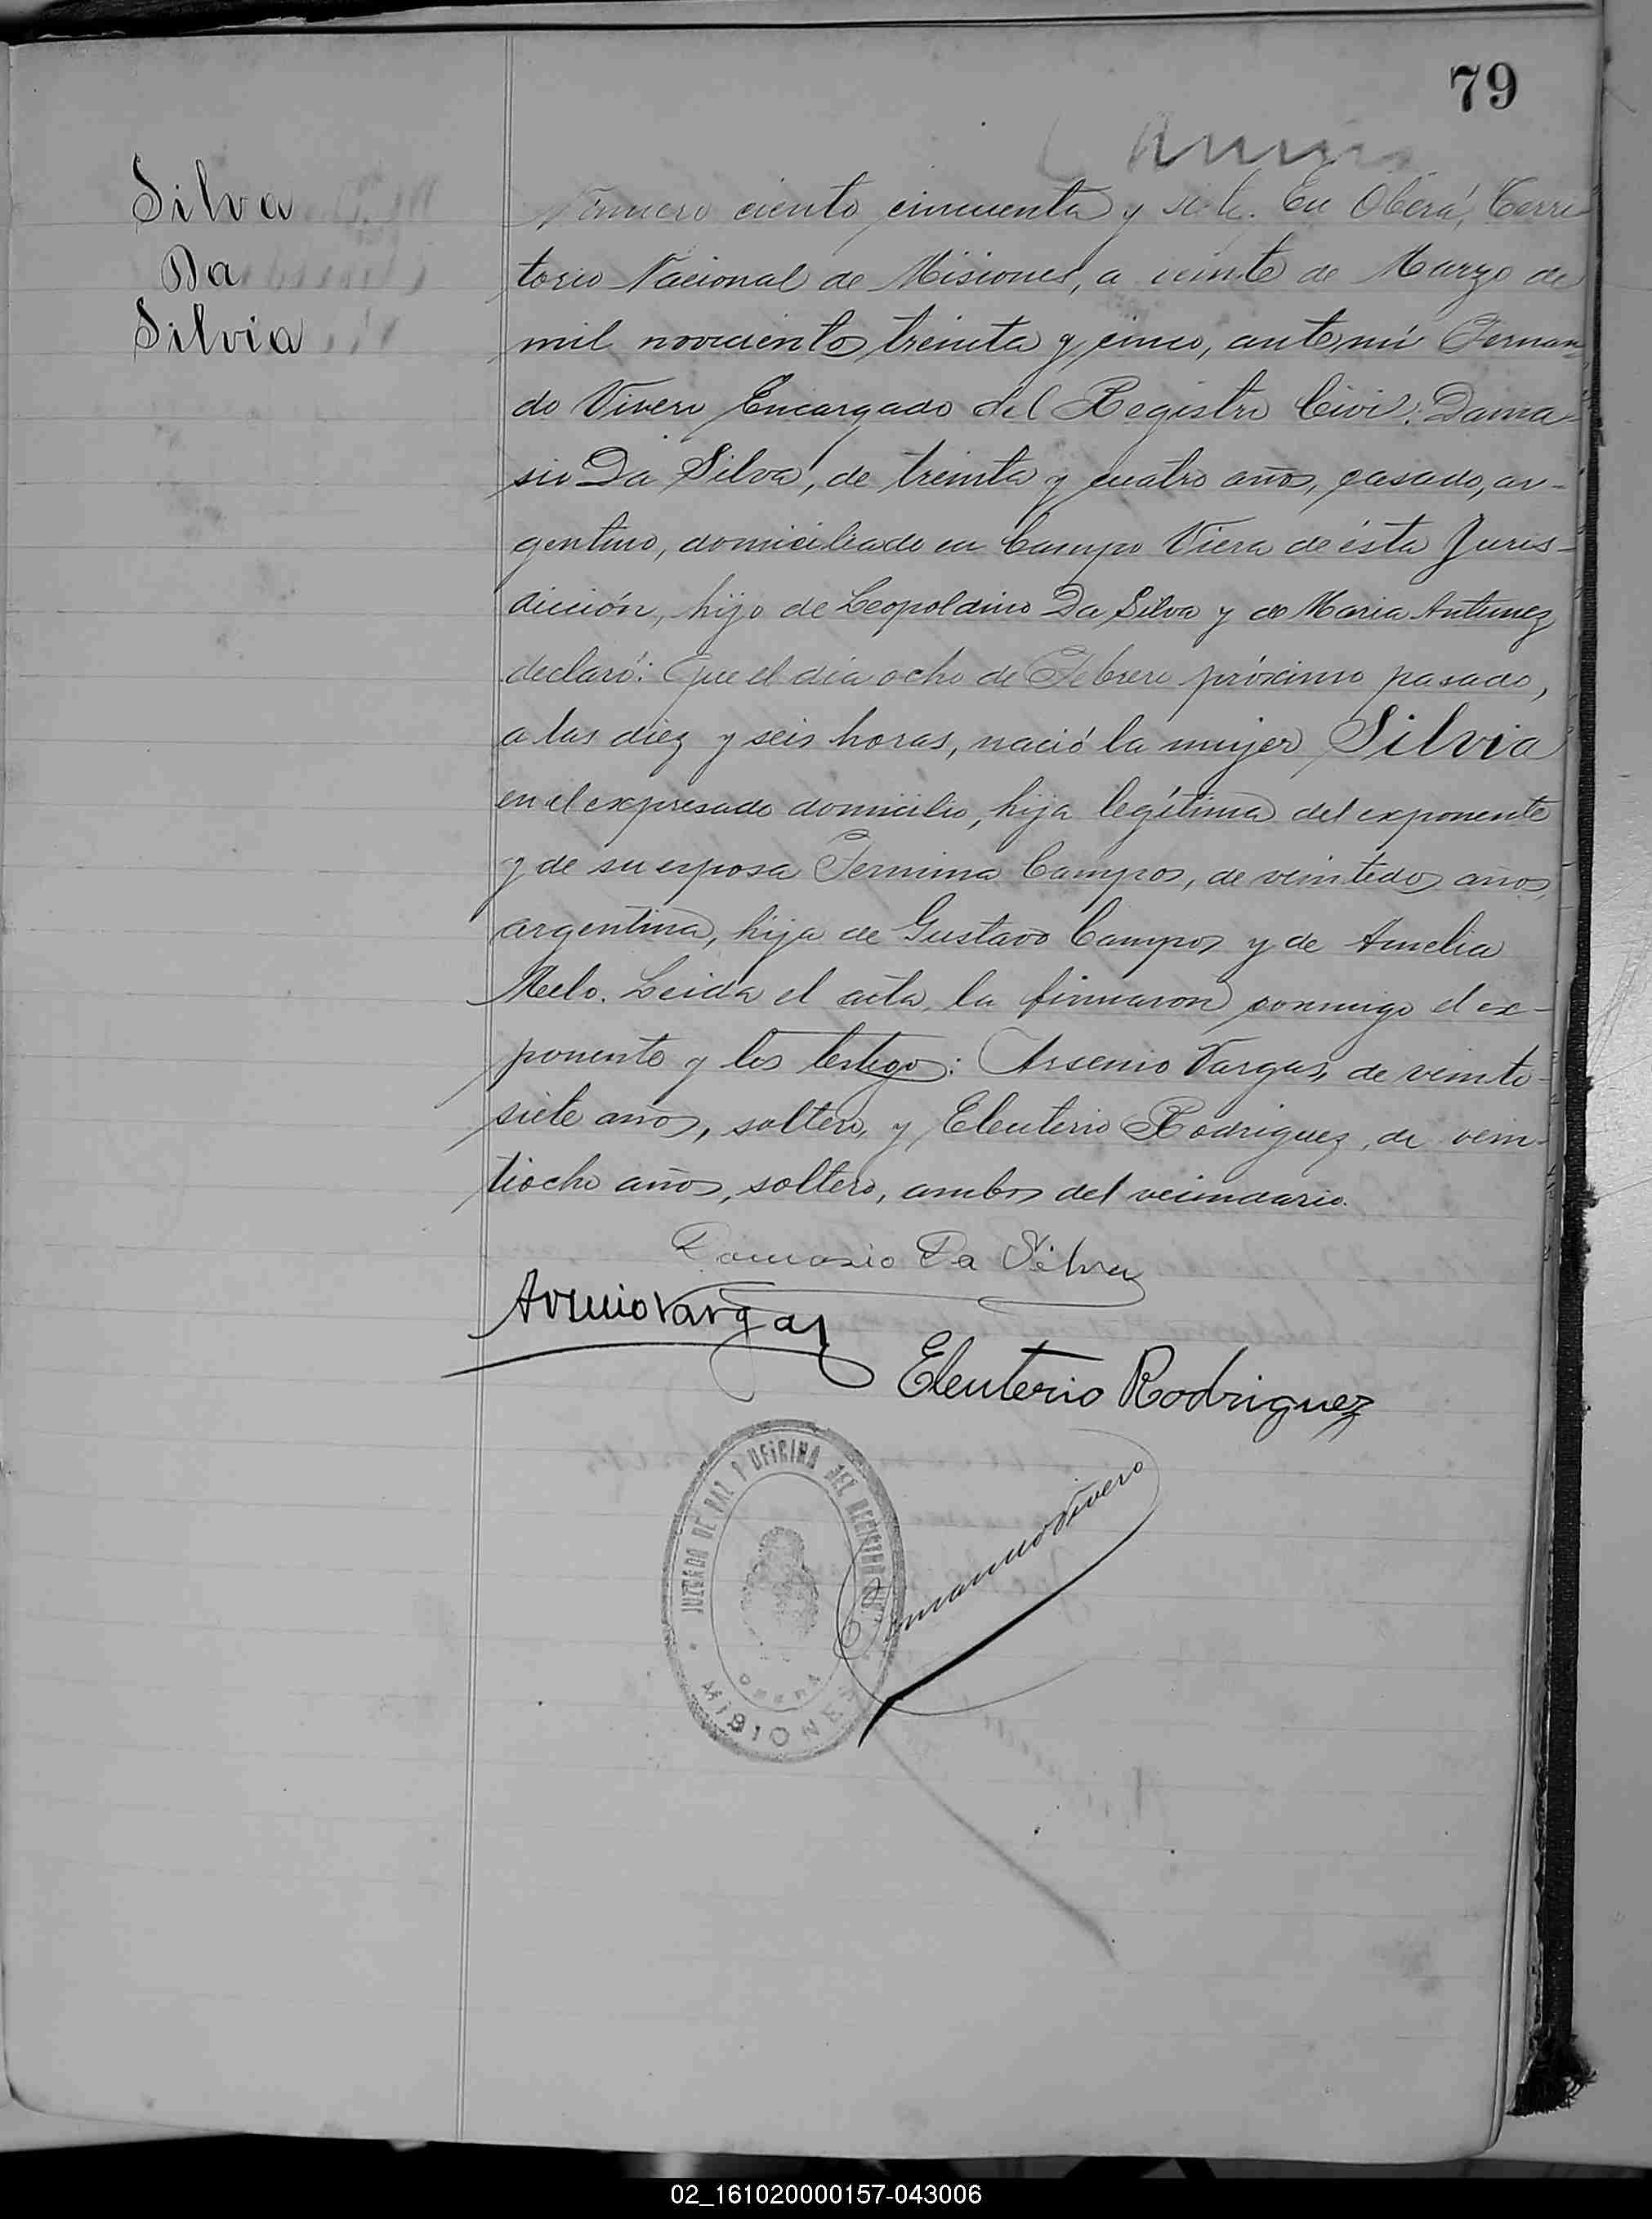 79
Silva
Da
Silvia
Número ciento cincuenta y siete. En Oberá, Terri-
torio Nacional de Misiones, a veinte de Marzo de
mil novecientos treinta y cinco, ante mí Fernan-
do Vivero Encargado del Registro Civil: Dama-
sio Da Silva, de treinta y cuatro años, casado, ar-
gentino, domiciliado en Campo Viera de ésta Juris-
dicción, hijo de Leopoldino Da Silva y de Maria Antunez
declaró: Que el día ocho de Febrero próximo pasado,
a las diez y seis horas, nació la mujer Silvia
en el expresado domicilio, hija legítima del exponente
y de su esposa Fermina Campos, de veintidos años,
argentina, hija de Gustavo Campos y de Amelia
Melo. Leida el acta, la firmaron conmigo el ex-
ponente y los testigos: Arsenio Vargas, de veinte-
siete años, soltero, y Eleuterio Rodriguez, de vein-
tiocho años, soltero, ambos del vecindario.
Damasio Da Silva
Arsenio Vargas
Eleuterio Rodriguez
Fernando Vivero
JUZGADO DE PAZ Y OFICINA DEL REGISTRO CIVIL
OBERA
MISIONES
02_161020000157-043006